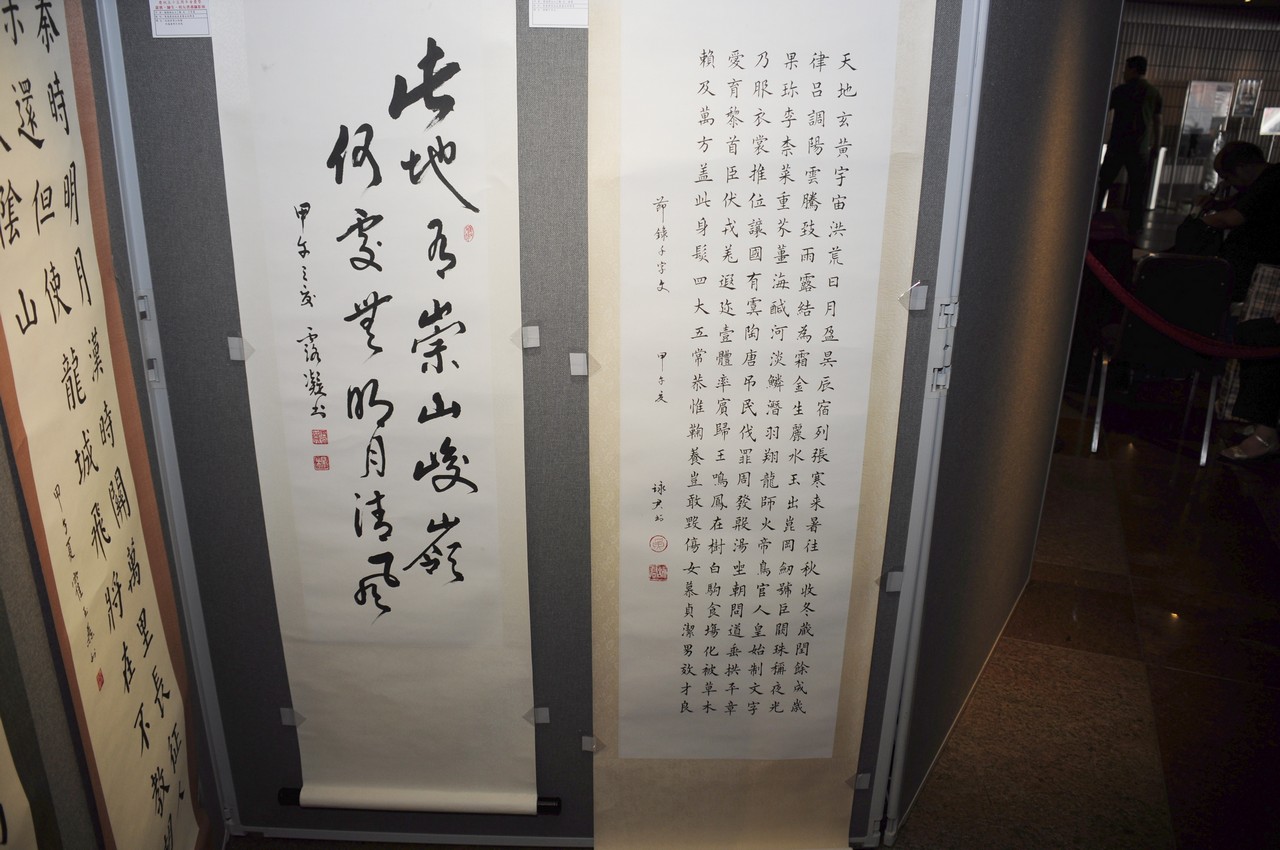 天地玄黃宇宙洪荒日月盈昃辰宿列張寒来暑往秋收冬蔵閏餘成歲
律呂調陽雲騰致雨露結為霜金生麗水玉出崑岡劒號巨闕珠稱夜光
果珍李柰菜重芥薑海鹹河淡鱗潛羽翔龍師火帝鳥官人皇始制文字
乃服衣裳推位讓國有虞陶唐吊民伐罪周發殷湯坐朝問道垂拱平章
愛育黎首臣伏戎羌遐迩壹體率賓歸王鳴鳳在樹白駒食場化被草木
賴及萬方盖此身髮四大五常恭惟鞠養豈敢毀傷女慕貞潔男效才良
節錄千字文 甲午夏 詠君書
此地有崇山峻嶺
何處無明月清風
甲午之夏 露凝書
秦時明月漢時關萬里長征人
未還但使龍城飛將在不教胡
陰山
甲午夏